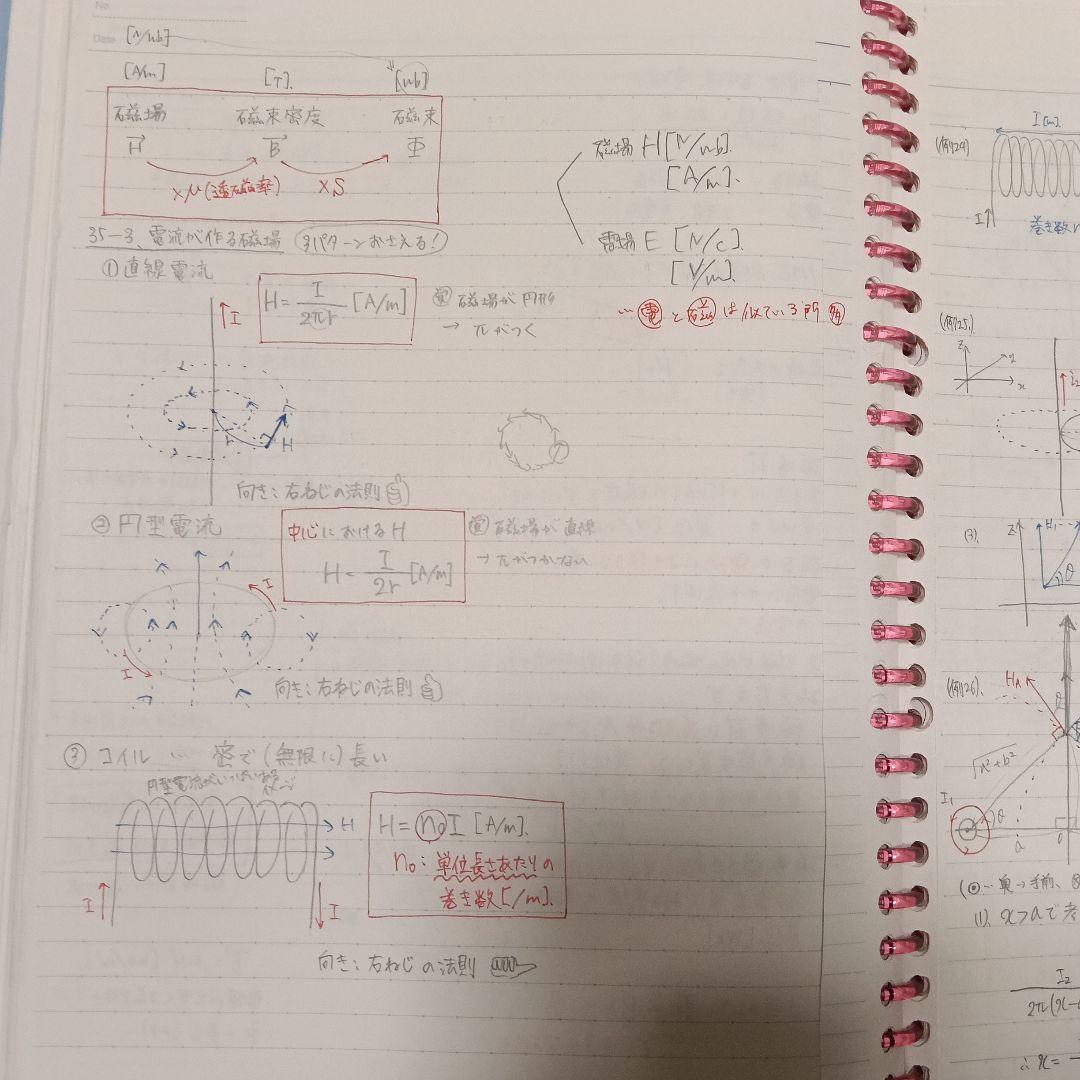 No.
Date [N/Wb]
[A/m] [T]. [Wb]
磁場 磁束密度 磁束
H B Φ
×μ(透磁率) ×S
磁場 H [N/Wb].
[A/m].
電場 E [N/C].
[V/m].
… 電 と 磁 は似ている所
35-3. 電流が作る磁場 3パターンおさえる!
① 直線電流
I
H = I/2πr [A/m]
覚 磁場が円形
→ πがつく
r
H
向き: 右ねじの法則
② 円型電流
中心における H
H = I/2r [A/m]
覚 磁場が直線
→ πがつかない
I
I
向き: 右ねじの法則
③ コイル … 密で(無限に)長い
円型電流がいっぱいあるイメージ
H
I
I
H = n₀I [A/m].
n₀: 単位長さあたりの
巻き数[/m].
向き: 右ねじの法則
(例24)
I[m].
I
巻き数
(例25).
z
y
x
(3).
z
θ
(例26).
θ
√x²+b²
I₁
θ
a
0
(◎… 奥→手前、
(1). x>aで
I₂
2π(x-
∴ x=